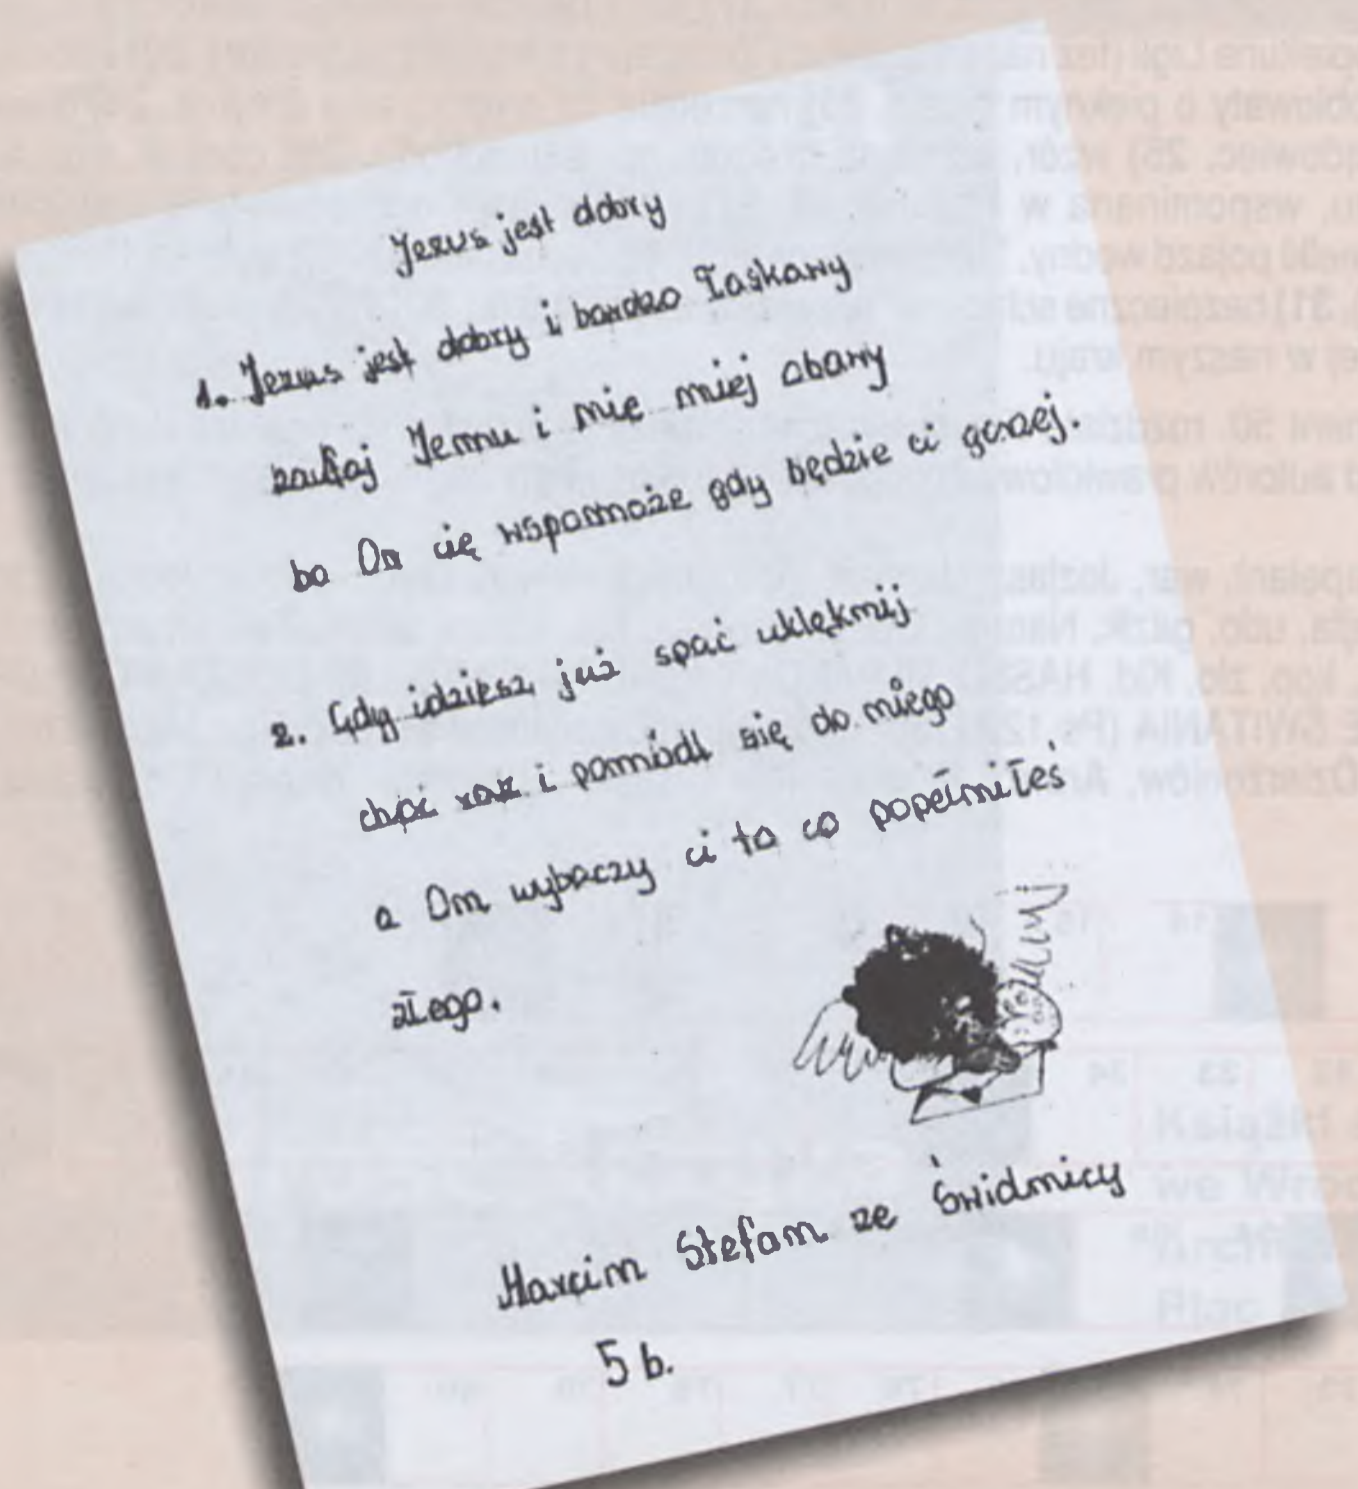 Jezus jest dobry
1. Jezus jest dobry i bardzo Łaskawy
zaufaj Jemu i nie miej obawy
bo On cię wspomoże gdy będzie ci gorzej.
2. Gdy idziesz już spać uklęknij
choć raz i pomódl się do niego
a On wybaczy ci to co popełniłeś
złego.
Marcin Stefan ze Świdnicy
5 b.